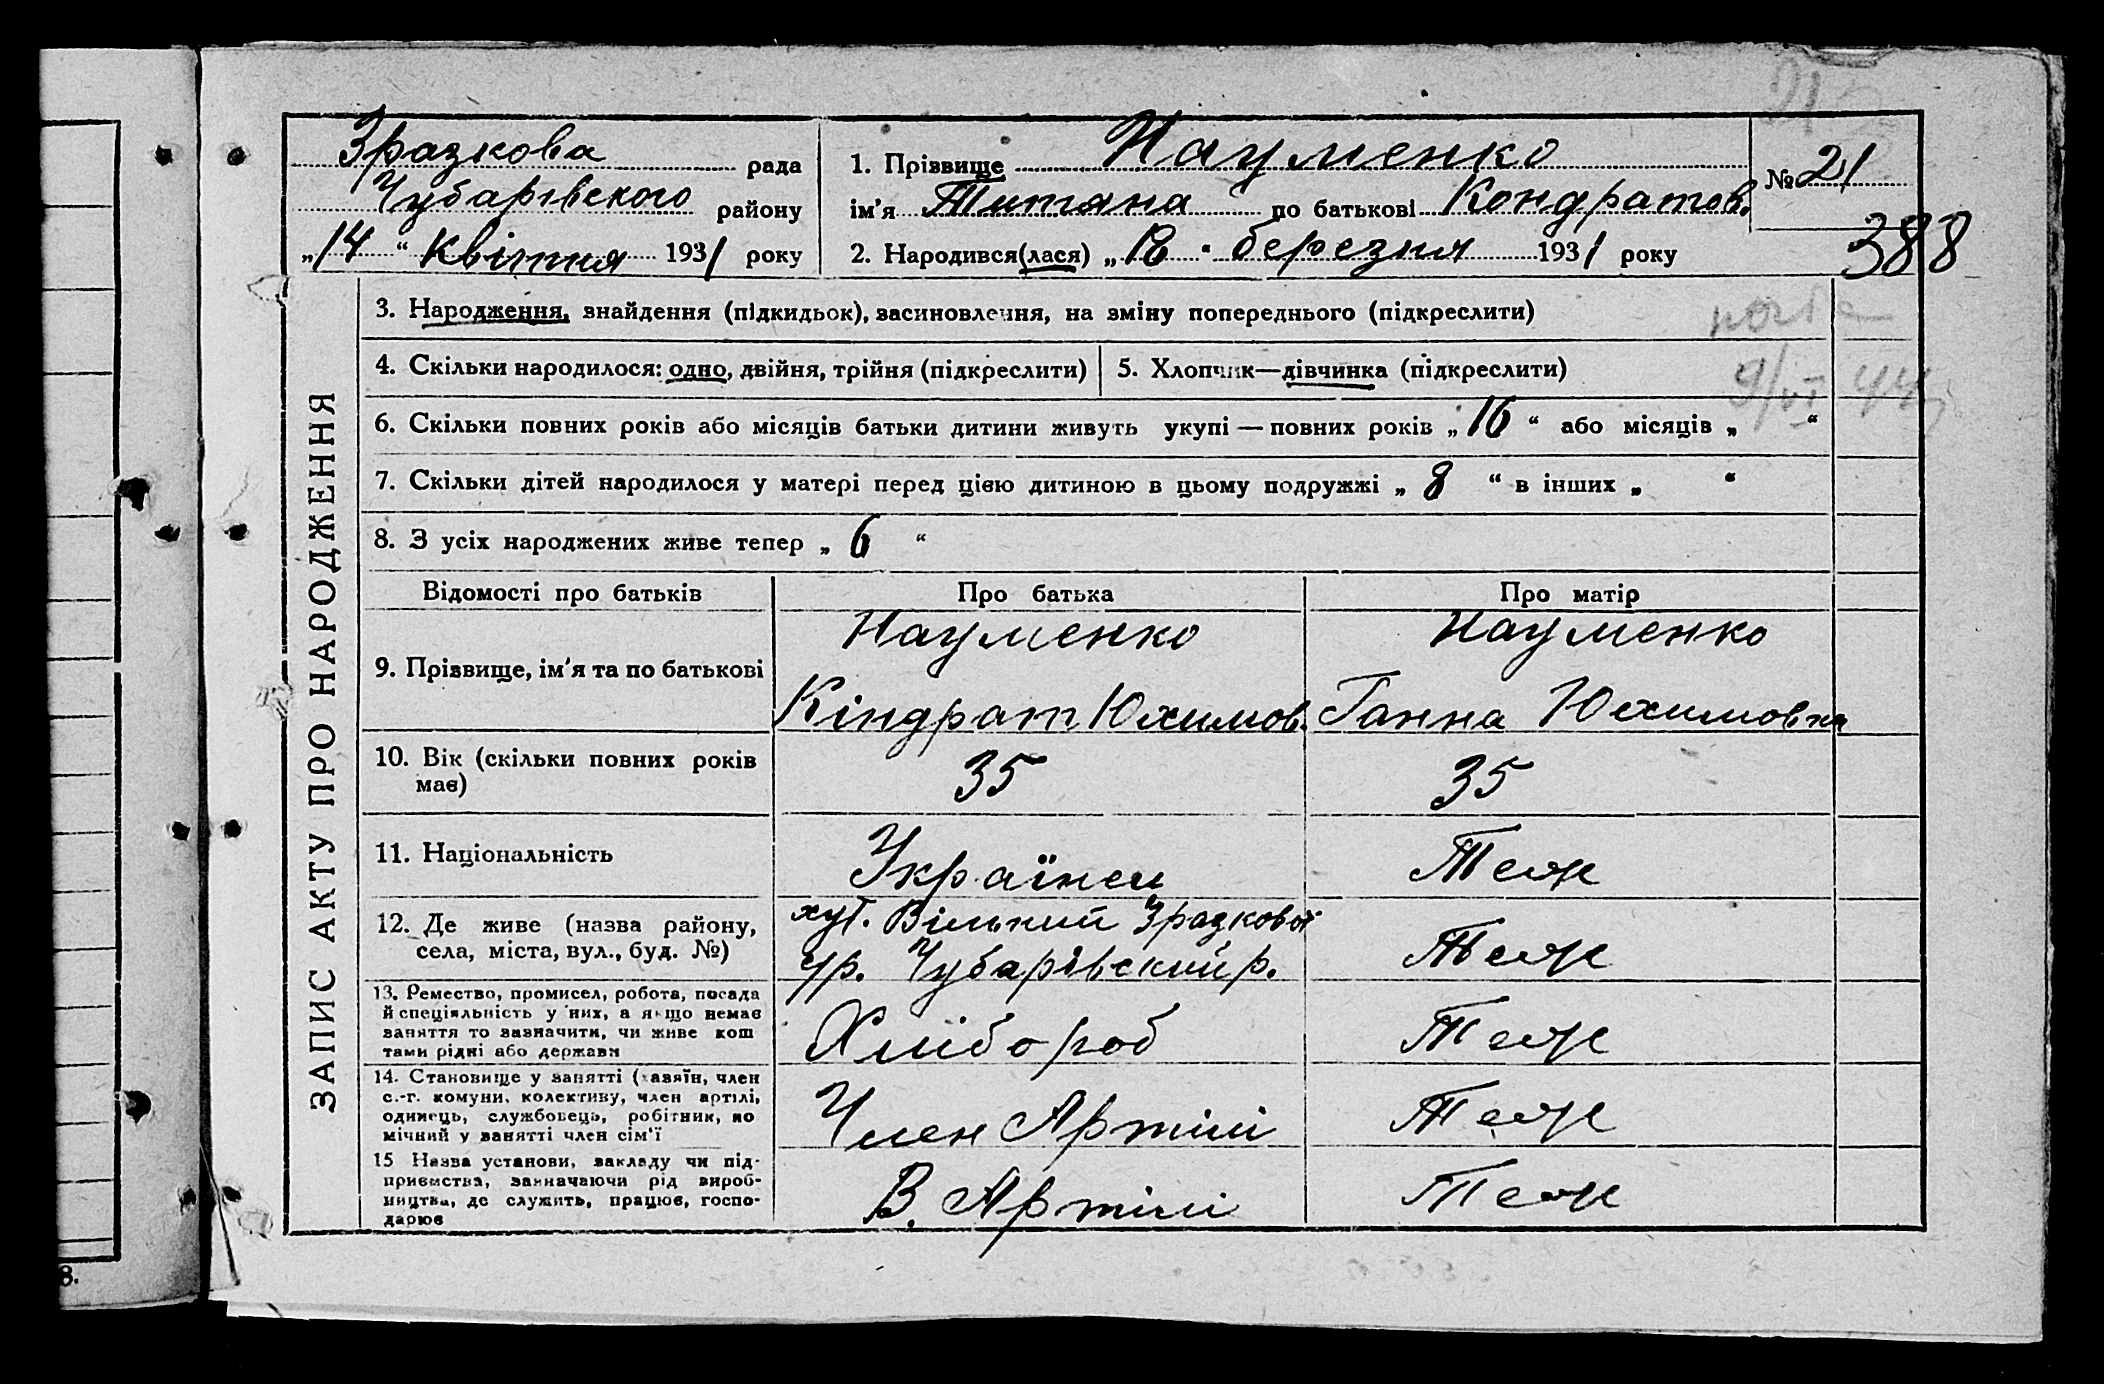 Зразкова рада
Чубарівського району
„14“ Квітня 1931 року
1. Прізвище Науменко
ім'я Титяна по батькові Кондратов.
2. Народився(лася) „18“ березня 1931 року
№ 21
388
9/VI 44
ЗАПИС АКТУ ПРО НАРОДЖЕННЯ
3. Народження, знайдення (підкидьок), засиновлення, на зміну попереднього (підкреслити)
4. Скільки народилося: одно, двійня, трійня (підкреслити)
5. Хлопчик—дівчинка (підкреслити)
6. Скільки повних років або місяців батьки дитини живуть укупі — повних років „16“ або місяців „ “
7. Скільки дітей народилося у матері перед цією дитиною в цьому подружжі „8“ в інших „ “
8. З усіх народжених живе тепер „6“
Відомості про батьків Про батька Про матір
9. Прізвище, ім'я та по батькові
Науменко
Кіндрат Юхимов.
Науменко
Ганна Юхимовна
10. Вік (скільки повних років
має)
35
35
11. Національність
Українец
Теж
12. Де живе (назва району,
села, міста, вул., буд. №)
хут. Вільний Зразкової
ср. Чубарівский р.
Теж
13. Ремество, промисел, робота, посада
й спеціяльність у них, а якщо немає
заняття то зазначити, чи живе кош
тами рідні або держави
Хлібороб
Теж
14. Становище у занятті (хазяїн, член
с.-г. комуни, колективу, член артілі,
одинець, службовець, робітник, по
мічний у занятті член сім'ї
Член Артілі
Теж
15 Назва установи, закладу чи під-
приємства, зазначаючи рід вироб-
ництва, де служить, працює, госпо-
дарює
В. Артілі
Теж
8.